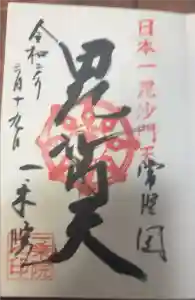 日本一毘沙門天
常陸国
毘沙門天
令和二年
月十九日
一乗院